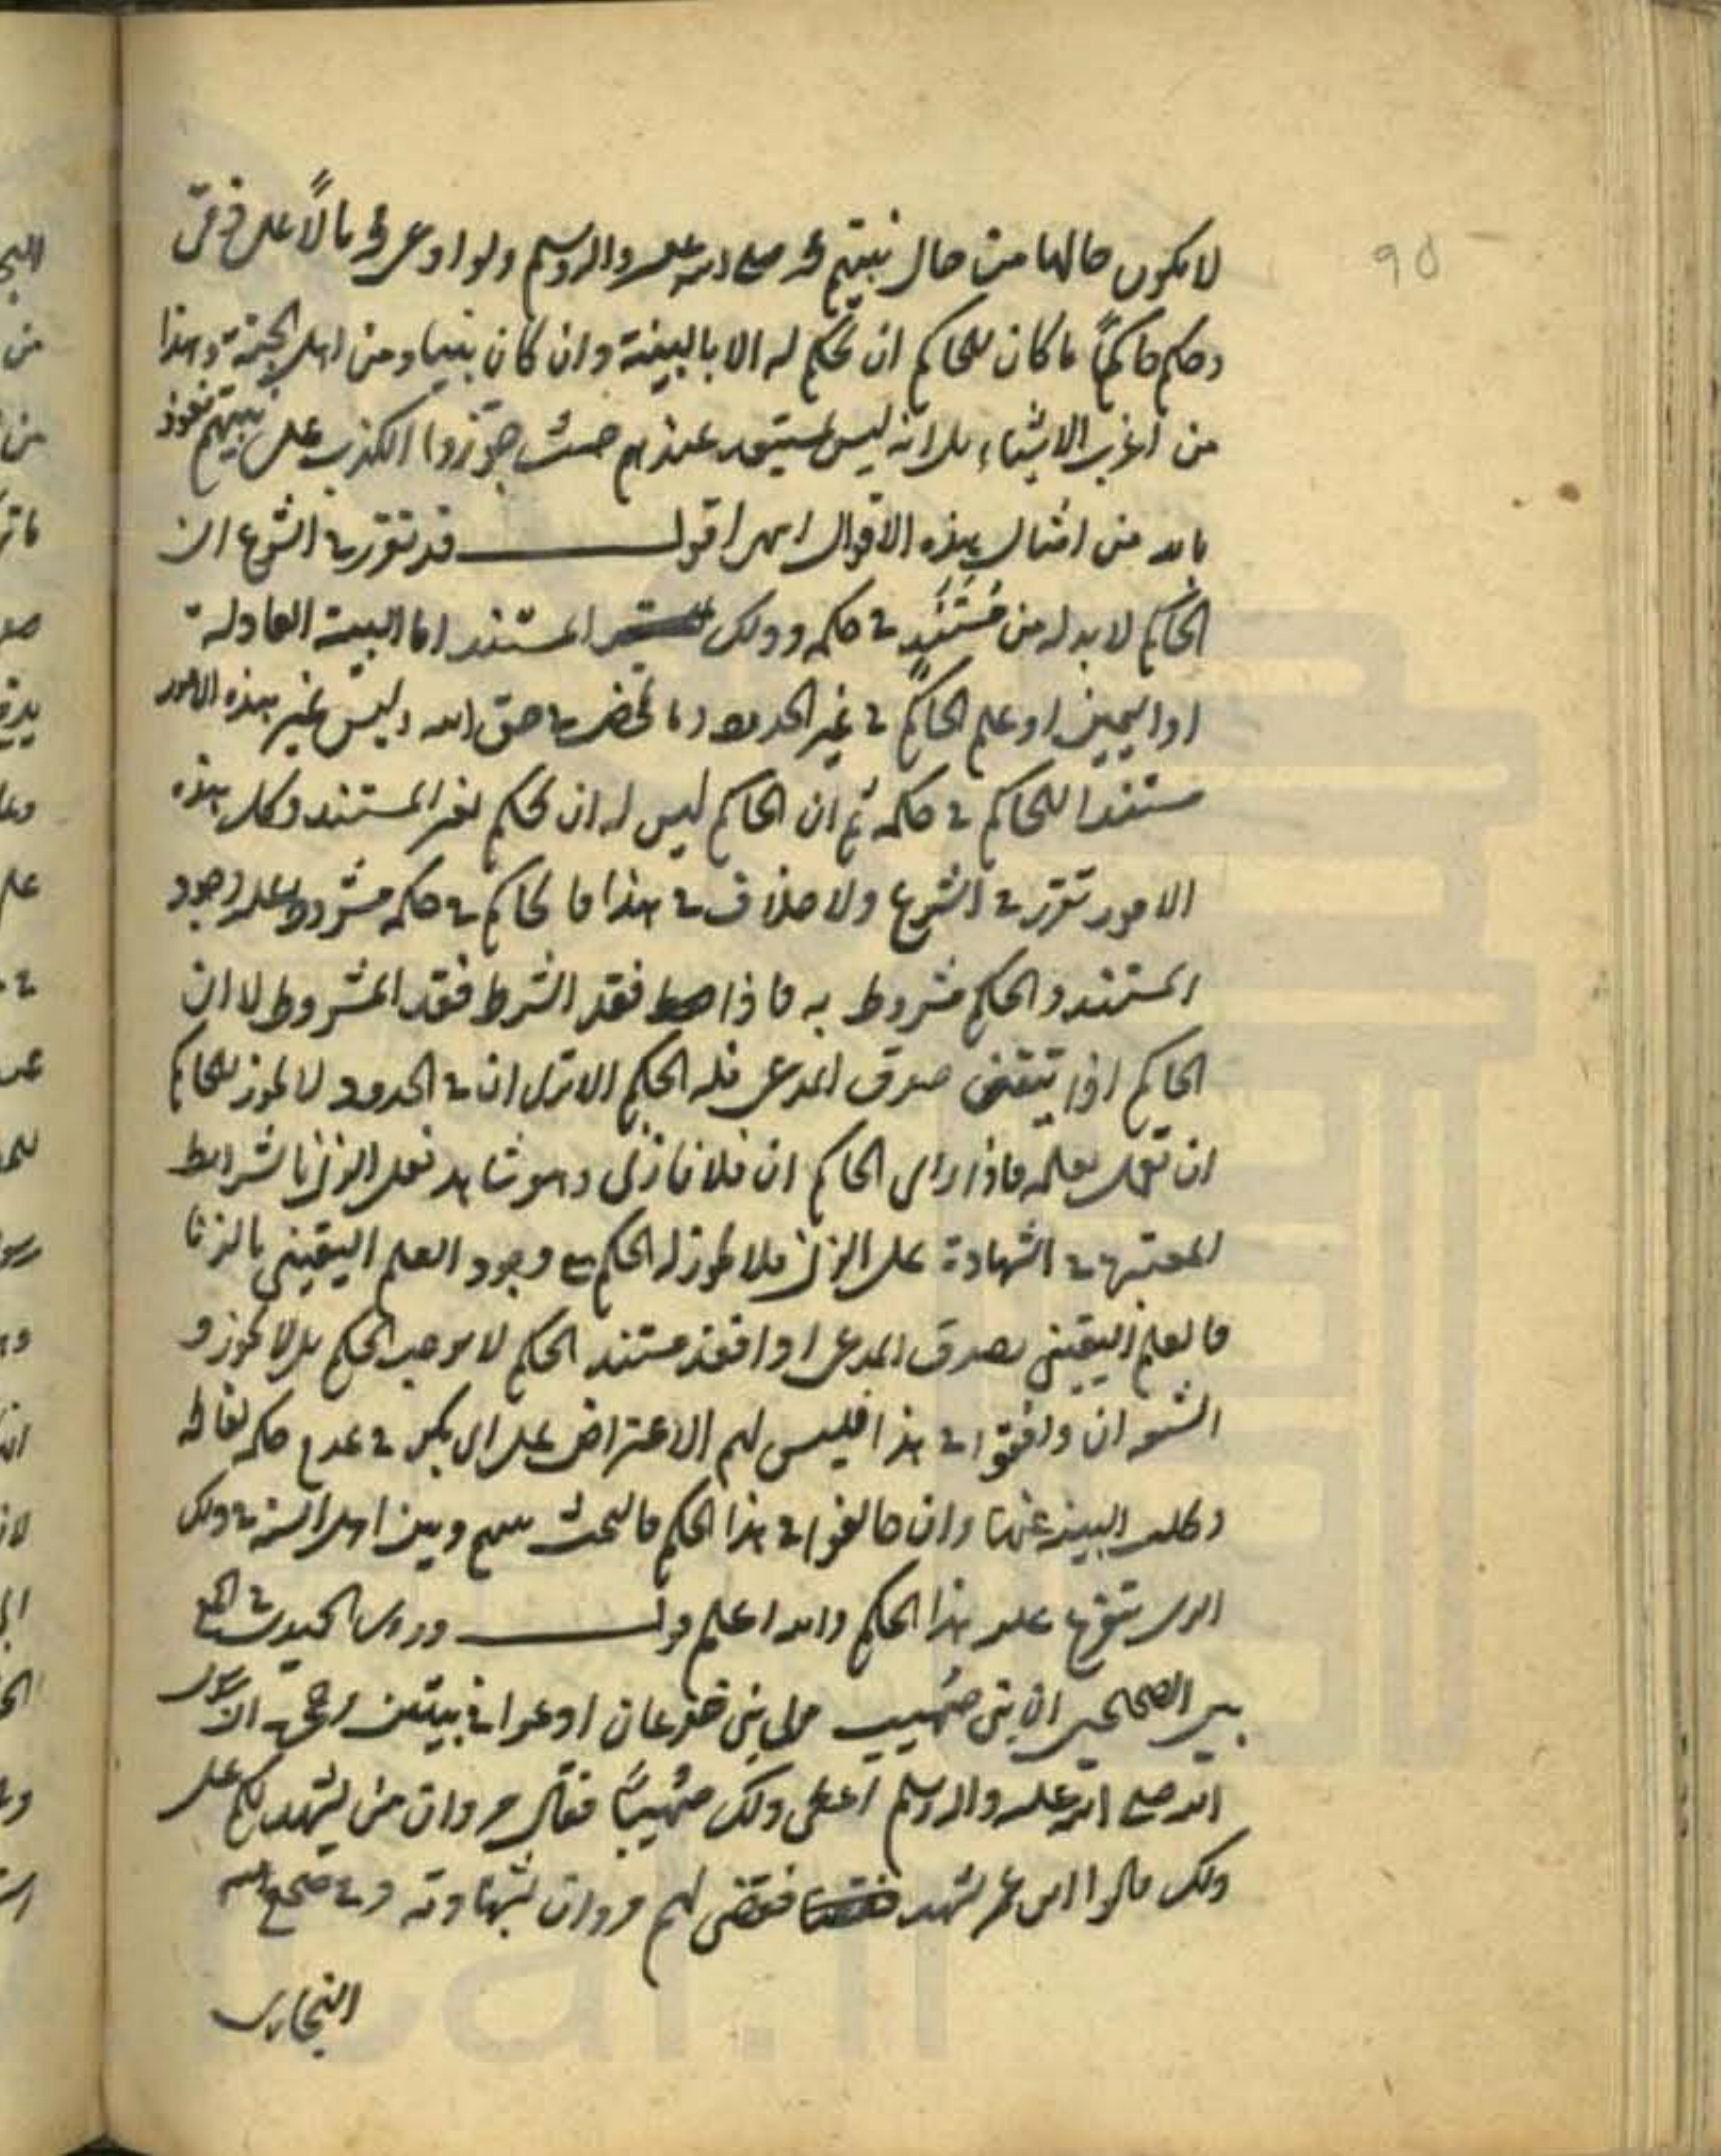 ٩٥
لا يكون حالها من حال نبيهم محمد صلى الله عليه واله وسلم ولو ادعى مالاً على ذمي
وحكم حاكماً ما كان للحاكم ان يحكم له الا بالبينة وان كان نبيا ومن اهل الجنة وهذا
من اغرب الاشياء بل انه ليس عندهم حيث جوزوا الكذب على نبيهم نعوذ
بالله من امثال هذه الاقوال انتهى اقول قد تقرر في الشرع ان
الحاكم لا بد له من مُسْتَنَدٍ في حكمه وذلك المستند اما البينة العادلة
او اليمين او علم الحاكم في غير الحدود وما تمحض في حق الله وليس غير هذه الامور
مستندا للحاكم في حكمه ثم ان الحاكم ليس له ان يحكم بغير المستند وكل هذه
الامور تقرر في الشرع ولا خلاف في هذا فالحاكم في حكمه مشروط عليه وجود
المستند والحكم مشروط به فاذا فقد الشرط فقد المشروط لا ان
الحاكم اذا تيقن صدق المدعى فله الحكم الا ترى ان في الحدود لا يجوز للحاكم
ان يعمل بعلمه فاذا راى الحاكم ان فلانا زنى وهو شاهد فعل الزنا بشرايط
المعتبرة في الشهادة على الزنا فلا يجوز له الحكم مع وجود العلم اليقيني بالزنا
فالعلم اليقيني بصدق المدعى اذا فقد مستند الحكم لا يوجب الحكم بل لا يجوز و
الشيعة ان وافقوا في هذا فليس لهم الاعتراض على ابي بكر في عدم حكمه لفاطمة
وطلب البينة عنها وان خالفوا في هذا الحكم فالبحث بينهم وبين اهل السنة في ذلك
الذي يتفرع عليه هذا الحكم والله اعلم قال وروى الحميدي في الجمع
بين الصحيحين ان بني صُهيب مولى بني جدعان ادعوا بيتين وحجرة ان رسول
الله صلى الله عليه واله وسلم اعطى ذلك صُهيباً فقال مروان من يشهد لكم على
ذلك قالوا ابن عمر يشهد فقضى لهم مروان بشهادته وفي صحيح
البخاري